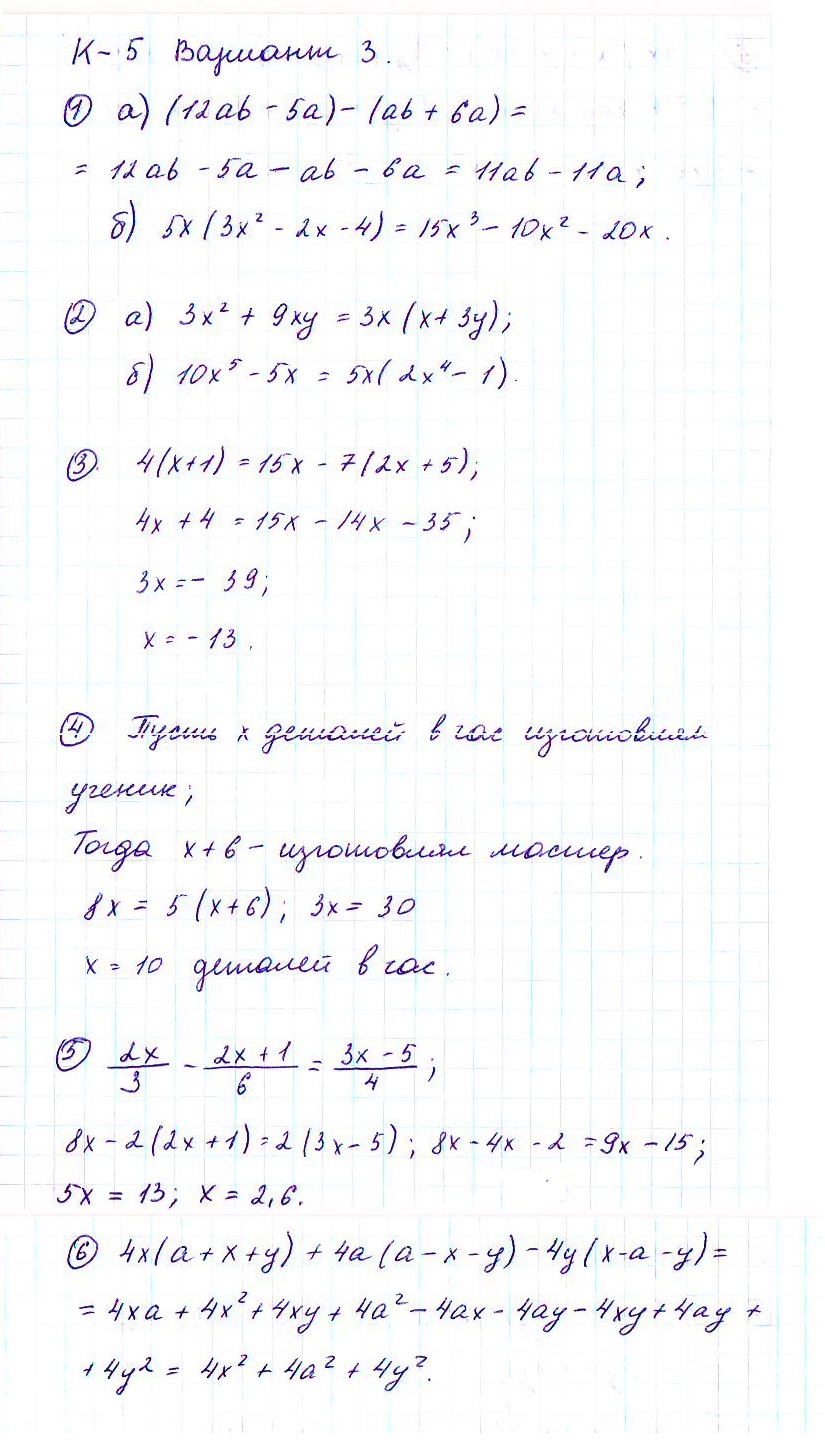 К-5 Вариант 3.
① а) (12ab - 5a) - (ab + 6a) =
= 12ab - 5a - ab - 6a = 11ab - 11a;
б) 5x(3x² - 2x - 4) = 15x³ - 10x² - 20x.
② а) 3x² + 9xy = 3x(x + 3y);
б) 10x⁵ - 5x = 5x(2x⁴ - 1).
③. 4(x+1) = 15x - 7(2x + 5);
4x + 4 = 15x - 14x - 35;
3x = - 39;
x = - 13.
④ Пусть x деталей в час изготовлял
ученик;
Тогда x + 6 - изготовлял мастер.
8x = 5(x+6); 3x = 30
x = 10 деталей в час.
⑤ 2x/3 - (2x + 1)/6 = (3x - 5)/4;
8x - 2(2x + 1) = 2(3x - 5); 8x - 4x - 2 = 9x - 15;
5x = 13; x = 2,6.
⑥ 4x(a + x + y) + 4a(a - x - y) - 4y(x - a - y) =
= 4xa + 4x² + 4xy + 4a² - 4ax - 4ay - 4xy + 4ay +
+ 4y² = 4x² + 4a² + 4y².